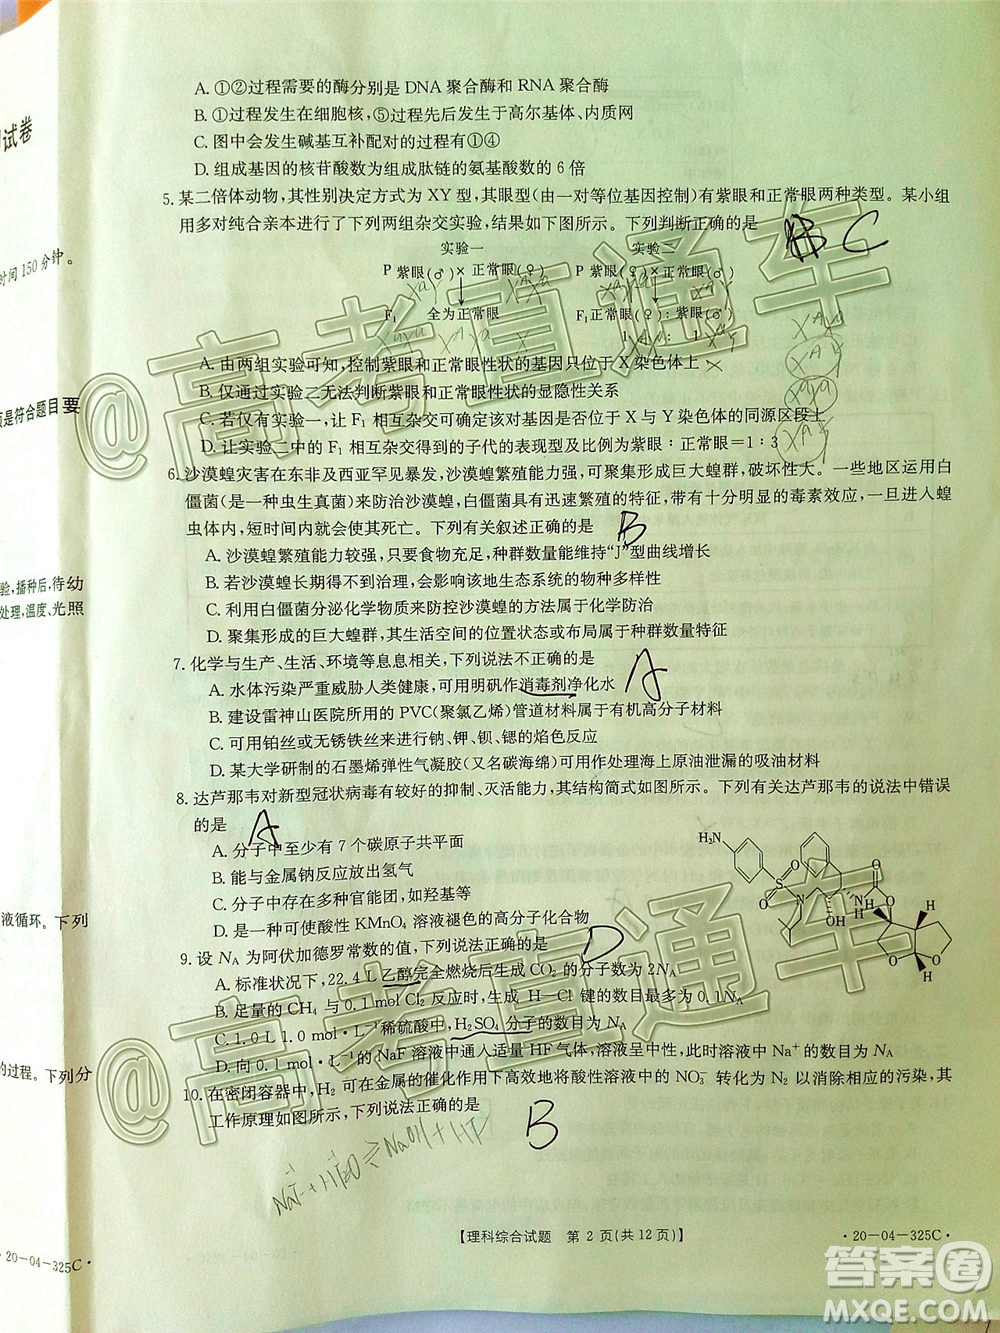 试卷
时间150分钟。
项是符合题目要
验,播种后,待幼
处理,温度、光照
液循环。下列
的过程。下列分
·20-04-325C·
A. ①②过程需要的酶分别是 DNA 聚合酶和 RNA 聚合酶
B. ①过程发生在细胞核,⑤过程先后发生于高尔基体、内质网
C. 图中会发生碱基互补配对的过程有①④
D. 组成基因的核苷酸数为组成肽链的氨基酸数的 6 倍
5. 某二倍体动物,其性别决定方式为 XY 型,其眼型(由一对等位基因控制)有紫眼和正常眼两种类型。某小组
用多对纯合亲本进行了下列两组杂交实验,结果如下图所示。下列判断正确的是
B C
实验一 实验二
P 紫眼(♂)×正常眼(♀) 紫眼(♀)×正常眼(♂)
F₁ 全为正常眼 F₁正常眼(♀):紫眼(♂)
1 : 1
A. 由两组实验可知,控制紫眼和正常眼性状的基因只位于 X 染色体上
B. 仅通过实验二无法判断紫眼和正常眼性状的显隐性关系
C. 若仅有实验一,让 F₁ 相互交配可确定该对基因是否位于 X 与 Y 染色体的同源区段上
D. 让实验二中的 F₁ 相互杂交得到的子代的表现型及比例为紫眼∶正常眼＝1∶3
6. 沙漠蝗灾害在东非及西亚罕见暴发,沙漠蝗繁殖能力强,可聚集形成巨大蝗群,破坏性大。一些地区运用白
僵菌(是一种虫生真菌)来防治沙漠蝗,白僵菌具有迅速繁殖的特征,带有十分明显的毒素效应,一旦进入蝗
虫体内,短时间内就会致其死亡。下列有关叙述正确的是 B
A. 沙漠蝗繁殖能力较强,只要食物充足,种群数量就能维持“J”型曲线增长
B. 若沙漠蝗长期得不到治理,会影响该地生态系统的物种多样性
C. 利用白僵菌分泌化学物质来防控沙漠蝗的方法属于化学防治
D. 聚集形成的巨大蝗群,其生活空间的位置状态或布局属于种群数量特征
7. 化学与生产、生活、环境等息息相关,下列说法不正确的是 A
A. 水体污染严重威胁人类健康,可用明矾作消毒剂净化水
B. 建设雷神山医院所用的 PVC(聚氯乙烯)管道材料属于有机高分子材料
C. 可用铂丝或无锈铁丝来进行钠、钾、钡、锶的焰色反应
D. 某大学研制的石墨烯弹性气凝胶(又名碳海绵)可用作处理海上原油泄漏的吸油材料
8. 达芦那韦对新型冠状病毒有较好的抑制、灭活能力,其结构简式如图所示。下列有关达芦那韦的说法中错误
的是 A
A. 分子中至少有 7 个碳原子共平面
B. 能与金属钠反应放出氢气
C. 分子中存在多种官能团,如羟基等
D. 是一种可使酸性 KMnO₄ 溶液褪色的高分子化合物
H₂N S O O N OH H N H O O O O H H
9. 设 N_A 为阿伏加德罗常数的值,下列说法正确的是 D
A. 标准状况下,22.4 L 乙醇完全燃烧后生成 CO₂ 的分子数为 2N_A
B. 足量的 CH₄ 与 0.1 mol Cl₂ 反应时,生成 H—Cl 键的数目最多为 0.1N_A
C. 1.0 L 1.0 mol·L⁻¹稀硫酸中,H₂SO₄ 分子的数目为 N_A
D. 向 0.1 mol·L⁻¹的 NaF 溶液中通入适量 HF 气体,溶液呈中性,此时溶液中 Na⁺ 的数目为 N_A
10. 在密闭容器中,H₂ 可在金属的催化作用下高效地将酸性溶液中的 NO₃⁻ 转化为 N₂ 以消除相应的污染,其
工作原理如图所示,下列说法正确的是 B
【理科综合试题 第 2 页(共 12 页)】
·20-04-325C·
@高考直通车
@高考直通车
答案圈
MXQE.COM